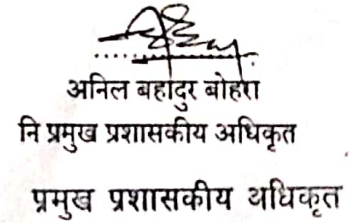 अनिल बहादुर बोहरा
नि प्रमुख प्रशासकीय अधिकृत
प्रमुख प्रशासकीय अधिकृत